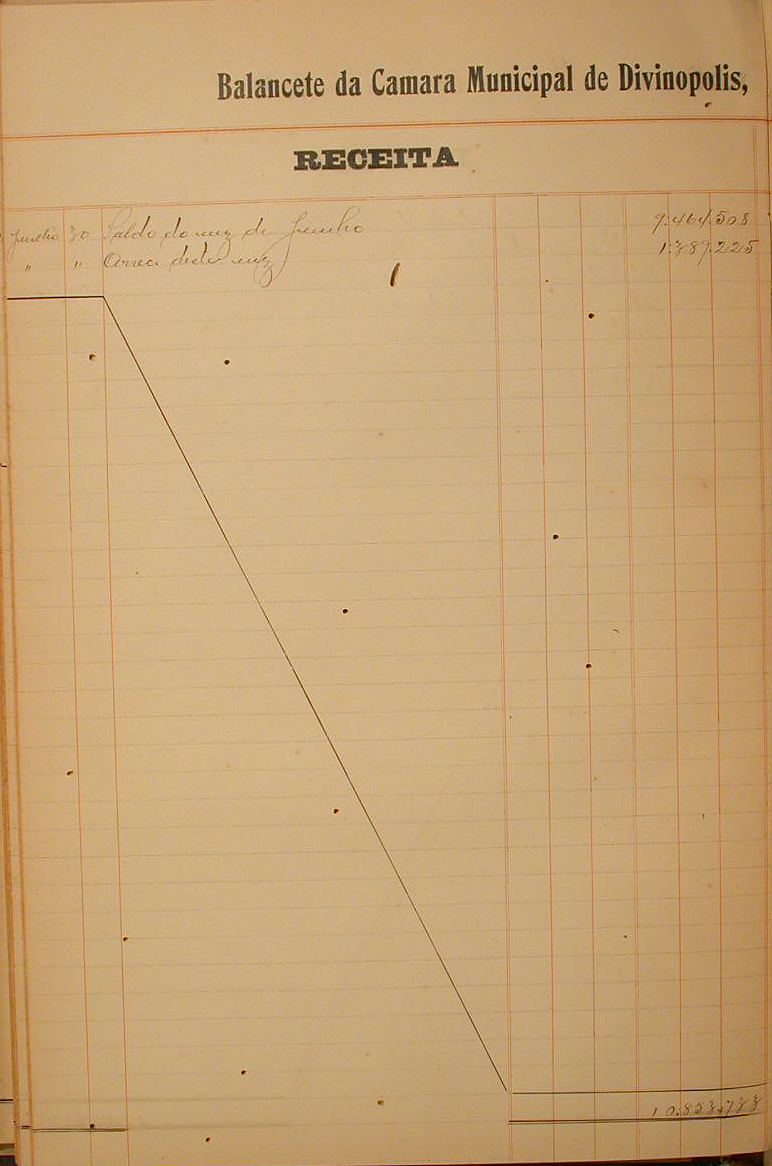 Balancete da Camara Municipal de Divinopolis,
RECEITA
30 Saldo do mez de Junho 9.464.508
" " Arrec. deste mez 1.389.225
10.853.733